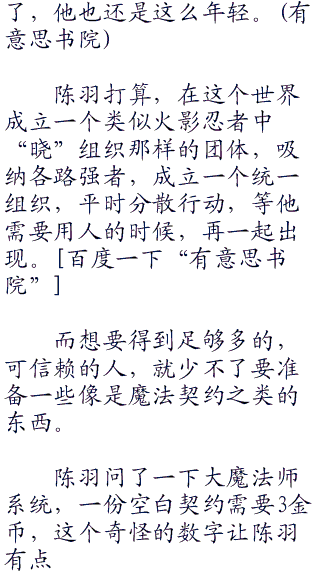 了，他也还是这么年轻。(有
意思书院)
陈羽打算，在这个世界
成立一个类似火影忍者中
“晓”组织那样的团体，吸
纳各路强者，成立一个统一
组织，平时分散行动，等他
需要用人的时候，再一起出
现。[百度一下“有意思书
院”]
而想要得到足够多的，
可信赖的人，就少不了要准
备一些像是魔法契约之类的
东西。
陈羽问了一下大魔法师
系统，一份空白契约需要3金
币，这个奇怪的数字让陈羽
有点